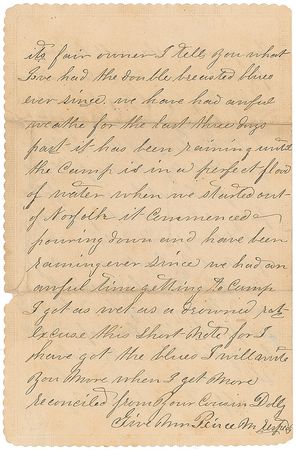 its fair owner I tell you what
I ove had the double breasted blues
ever since we have had awful
weathe for the last three days
past it has been raining untill
the Camp is in a perfect flood
of water when we started out
of Norfolk it Commenced
pouring down and have been
raining ever since we had an
awful time getting to Camp
I got as wet as a drowned rat
Excuse this short note for I
have got the blues I will write
you more when I get more
reconciled from your Cousin Dolly
Give Mrs Peirce my respects